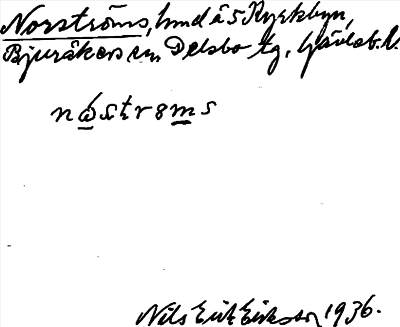 Norströms, hmd å 5 Kyrkbyn,
Bjuråkers sn Delsbo tg. Gävleb. l.
nåstrøms
Nils Erik Eriksson 1936.